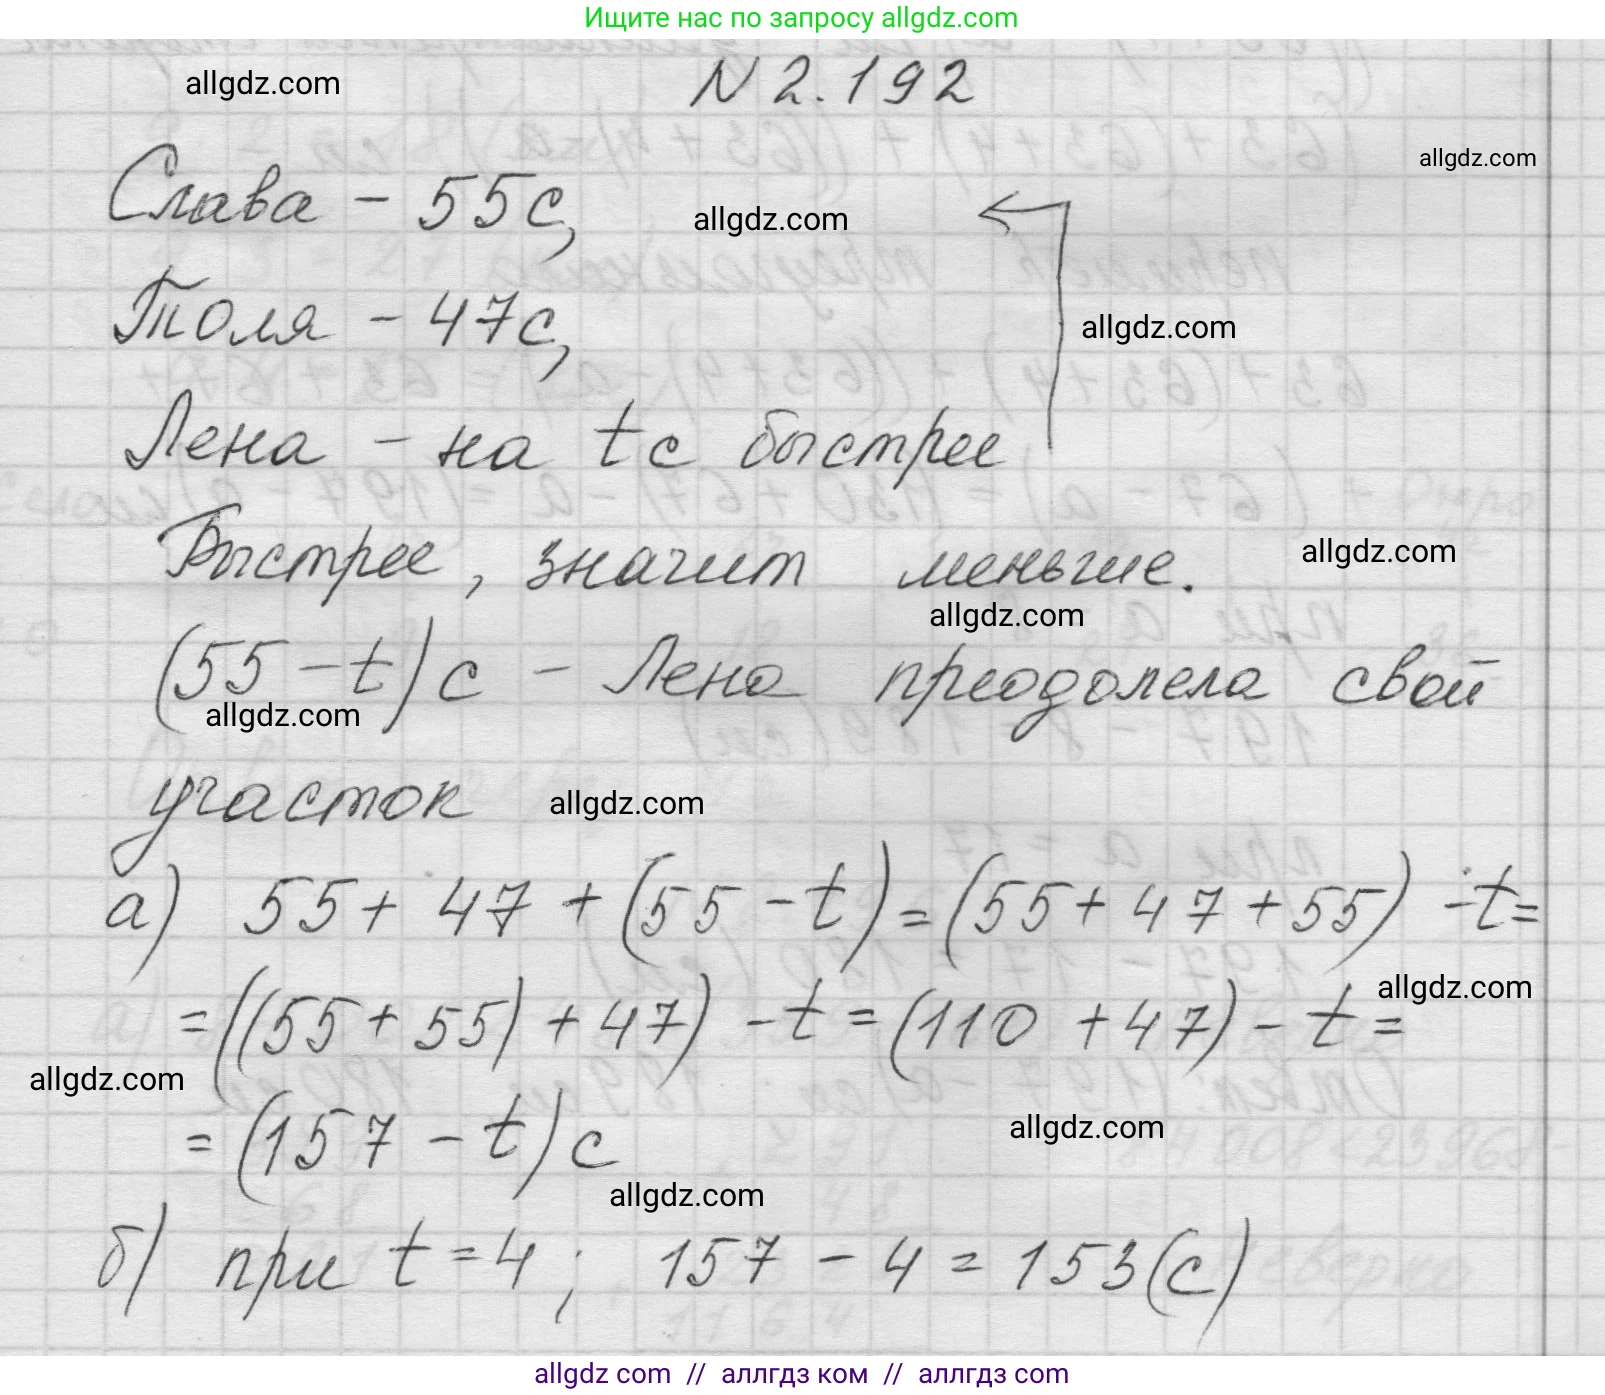 Ищите нас по запросу allgdz.com
N 2.192
allgdz.com
allgdz.com
Слава - 55с,
allgdz.com
Толя - 47с,
allgdz.com
Лена - на t с быстрее
Быстрее, значит меньше.
allgdz.com
allgdz.com
(55 - t) с - Лена преодолела свой
allgdz.com
участок
allgdz.com
а) 55 + 47 + (55 - t) = (55 + 47 + 55) - t =
allgdz.com
= ((55 + 55) + 47) - t = (110 + 47) - t =
allgdz.com
= (157 - t) с
allgdz.com
allgdz.com
б) при t = 4; 157 - 4 = 153 (с)
allgdz.com // аллгдз ком // аллгдз.com